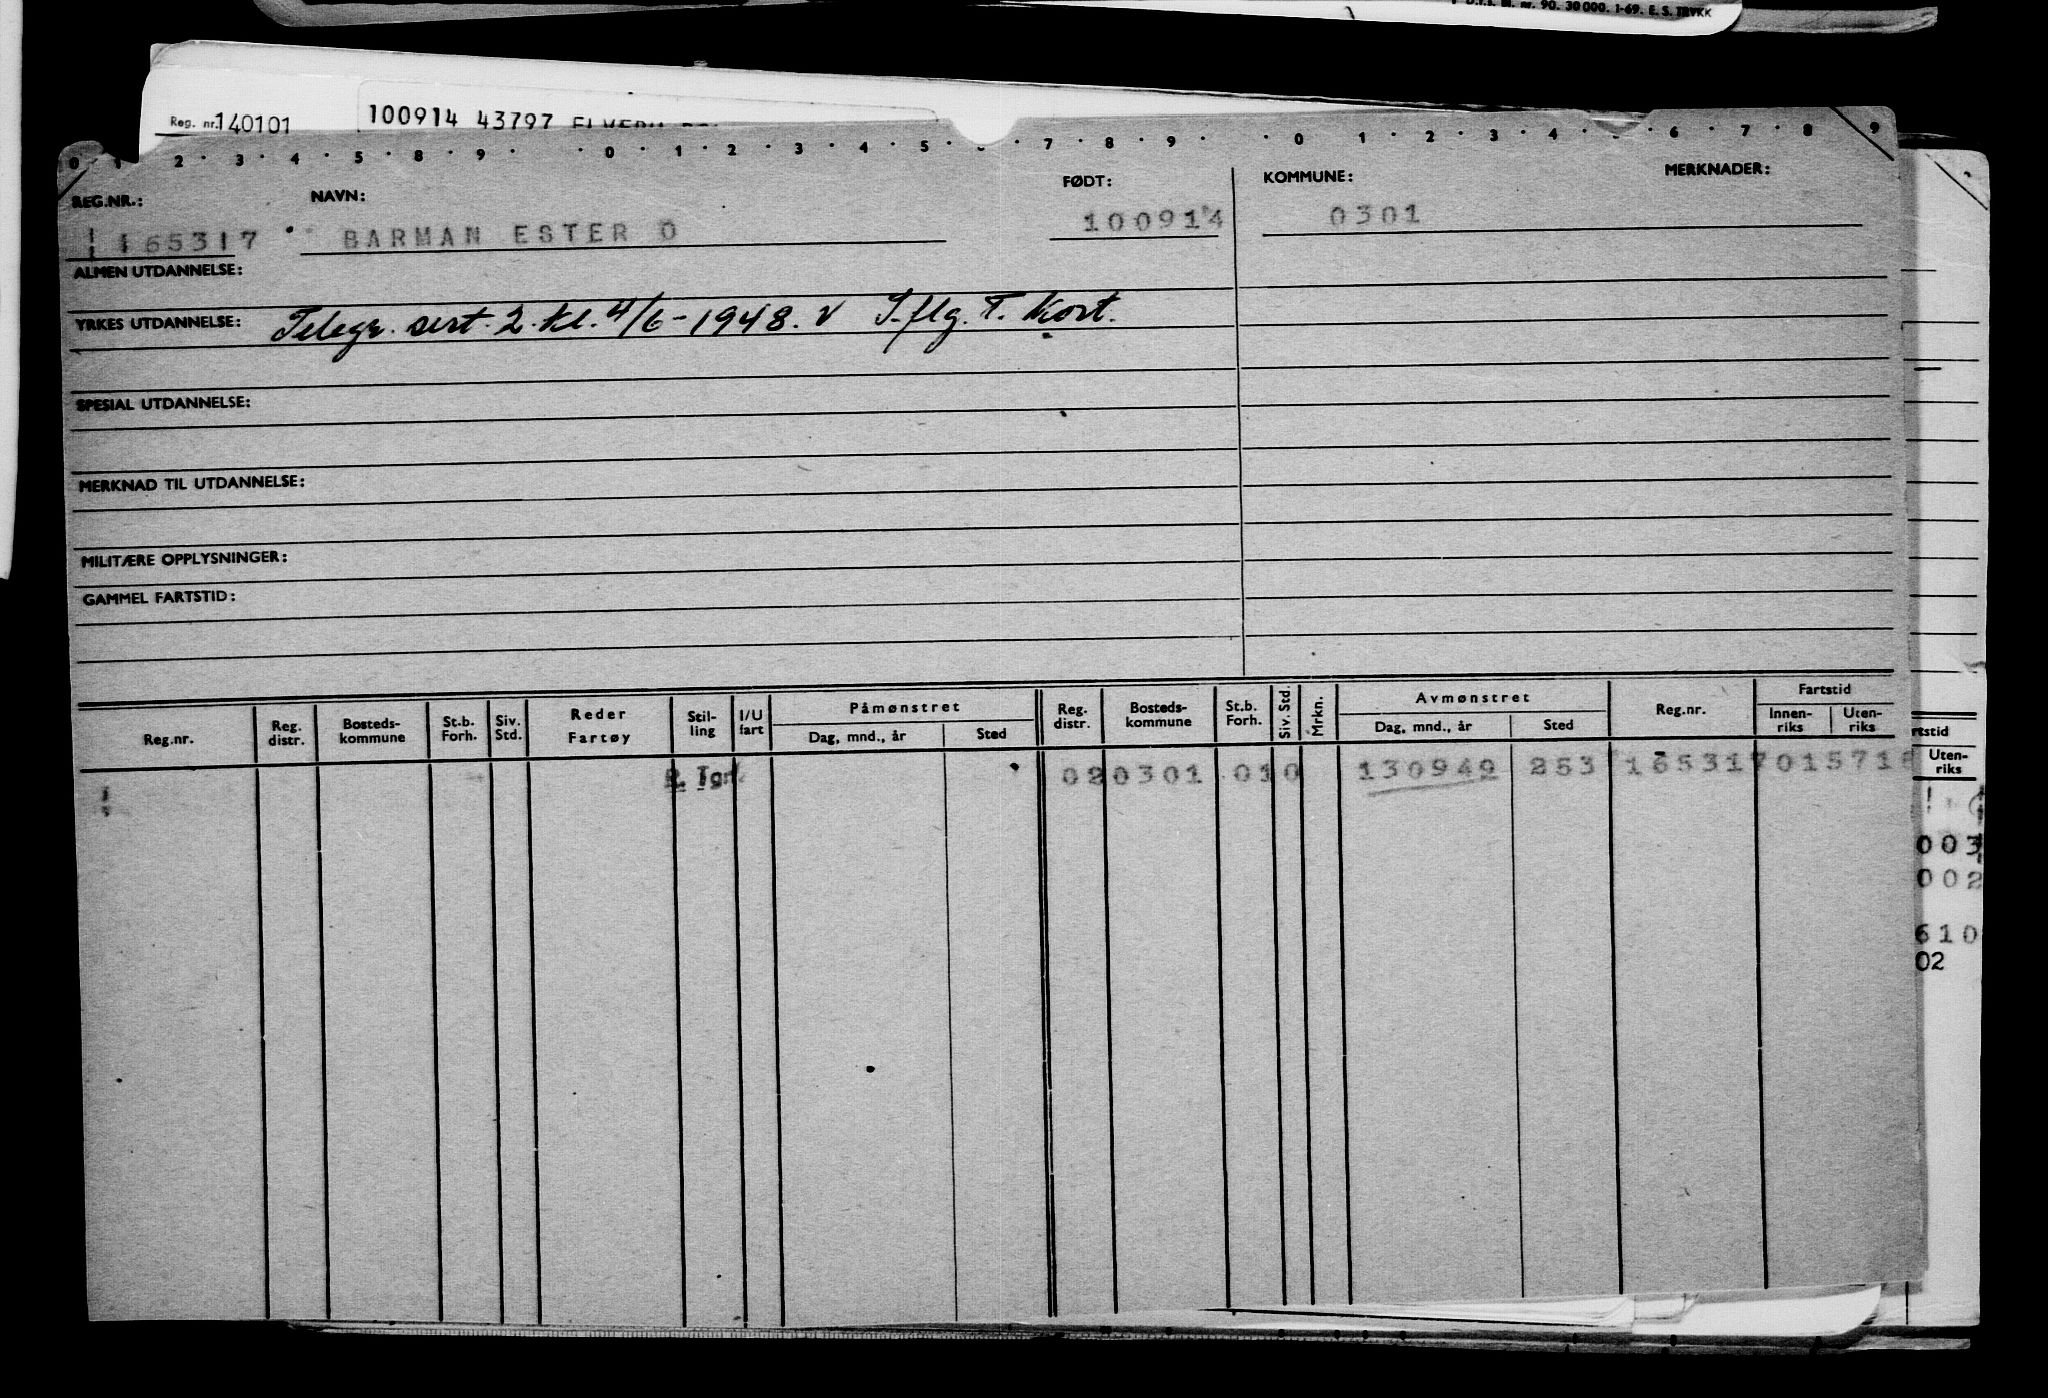 D.f.s. M. nr. 90. 30 000. 1-69. E. S. TRYKK
Reg. nr. 140101 100914 43797
0 1 2 3 4 5 8 9 0 1 2 3 4 5 7 8 9 0 1 2 3 4 6 7 8 9
REG.NR.: NAVN: FØDT: KOMMUNE: MERKNADER:
165317 BARMAN ESTER O 100914 0301
ALMEN UTDANNELSE:
YRKES UTDANNELSE: Telegr. sert. 2. kl. 4/6-1948. v I flg. T. Kort.
SPESIAL UTDANNELSE:
MERKNAD TIL UTDANNELSE:
MILITÆRE OPPLYSNINGER:
GAMMEL FARTSTID:
Reg.nr. Reg. distr. Bosteds- kommune St.b. Forh. Siv. Std. Reder Fartøy Stil- ling I/U fart Påmønstret Dag, mnd., år Sted Reg. distr. Bosteds- kommune St.b. Forh. Siv. Std. Mrkn. Avmønstret Dag, mnd., år Sted Reg.nr. Fartstid Innen- riks Uten- riks
rtstid
Uten- riks
R. Tgr. 02 0301 01 0 130949 253 165317 01571
003
002
610
02